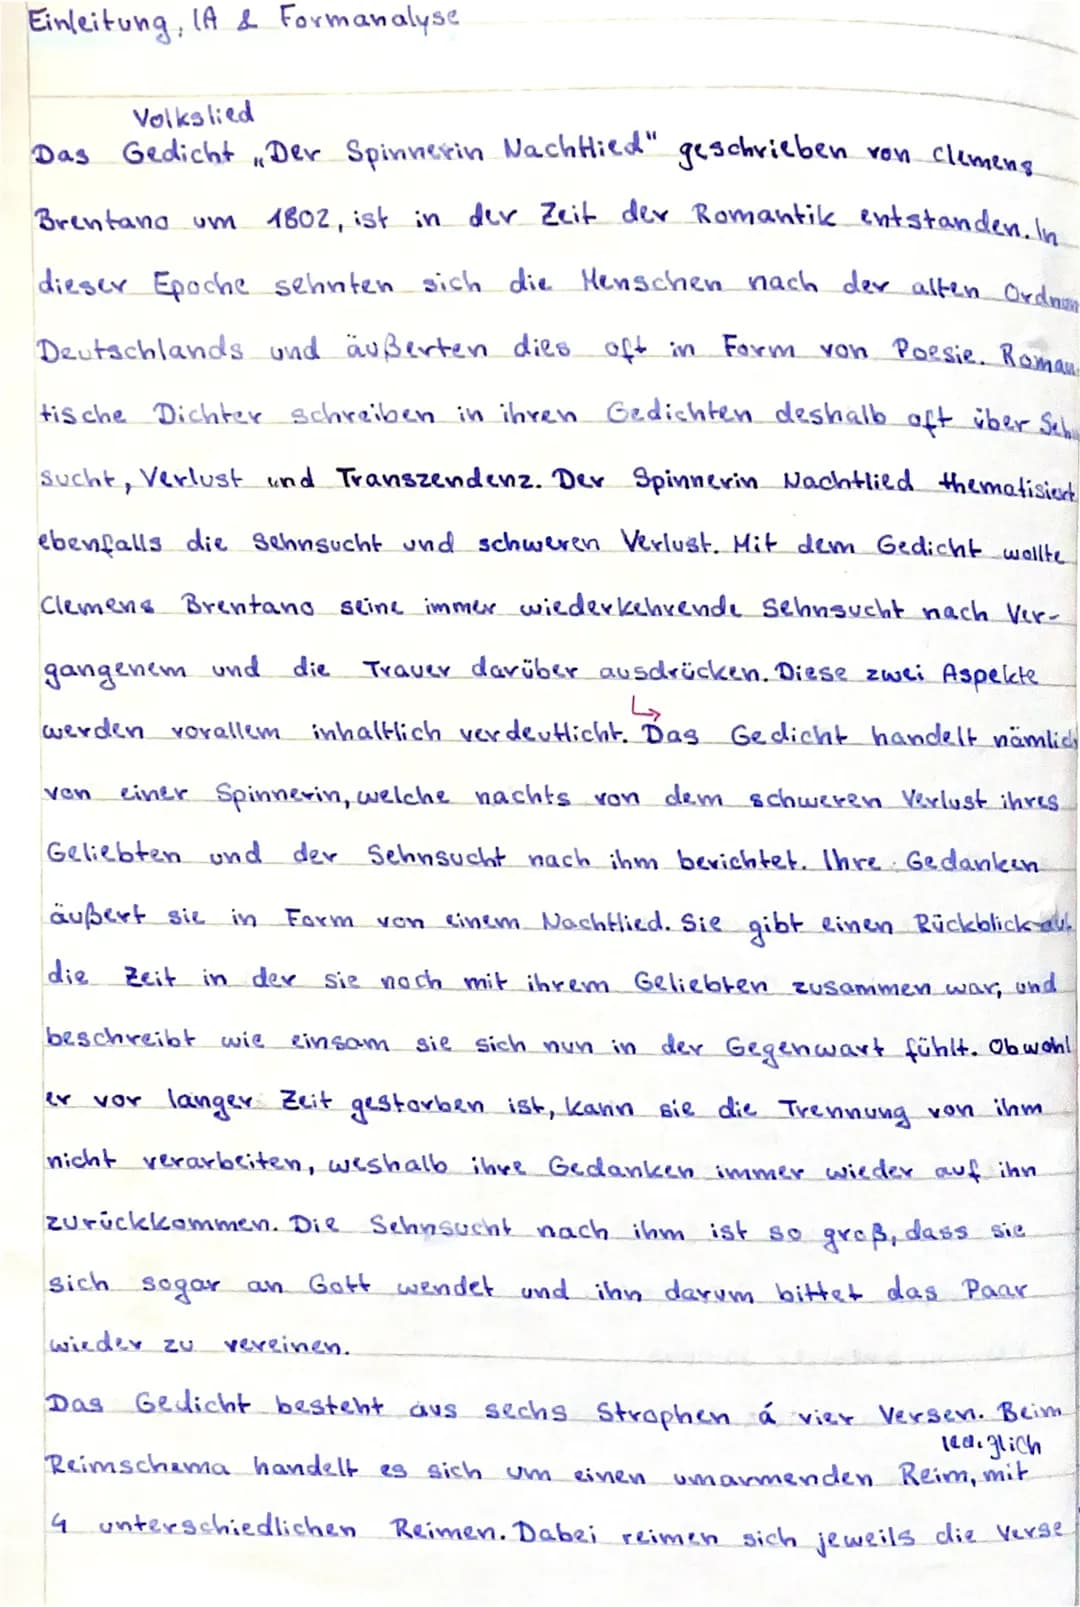 Einleitung, IA & Formanalyse
Volkslied
Das Gedicht „Der Spinnerin Nachtlied" geschrieben von Clemens
Brentano um 1802, ist in der Zeit der Romantik entstanden. In
dieser Epoche sehnten sich die Menschen nach der alten
Deutschlands und äußerten dies oft in Form von Poesie. Roman
tische Dichter schreiben in ihren Gedichten deshalb oft über Seh
sucht, Verlust und Transzendenz. Der Spinnerin Nachtlied thematisiert
ebenfalls die Sehnsucht und schweren Verlust. Mit dem Gedicht wollte
Clemens Brentano seine immer wiederkehrende Sehnsucht nach Ver-
gangenem und die Trauer darüber ausdrücken. Diese zwei Aspekte
werden vorallem inhaltlich verdeutlicht. Das Gedicht handelt nämlich
von einer Spinnerin, welche nachts von dem schweren Verlust ihres
Geliebten und der Sehnsucht nach ihm berichtet. Ihre Gedanken
äußert sie in Form von einem Nachtlied. Sie gibt einen Rückblick auf
die Zeit in der sie noch mit ihrem Geliebten zusammen war, und
beschreibt wie einsam sie sich nun in der Gegenwart fühlt. Obwohl
er vor langer Zeit gestorben ist, kann sie die Trennung von ihm
nicht verarbeiten, weshalb ihre Gedanken immer wieder auf ihn
zurückkommen. Die Sehnsucht nach ihm ist so groß, dass sie
sich sogar an Gott wendet und ihn darum bittet das Paar
wieder zu vereinen.
Das Gedicht besteht aus sechs Strophen á vier Versen. Beim
lediglich
Reimschema handelt es sich um einen umarmenden Reim, mit
4 unterschiedlichen Reimen. Dabei reimen sich jeweils die Verse